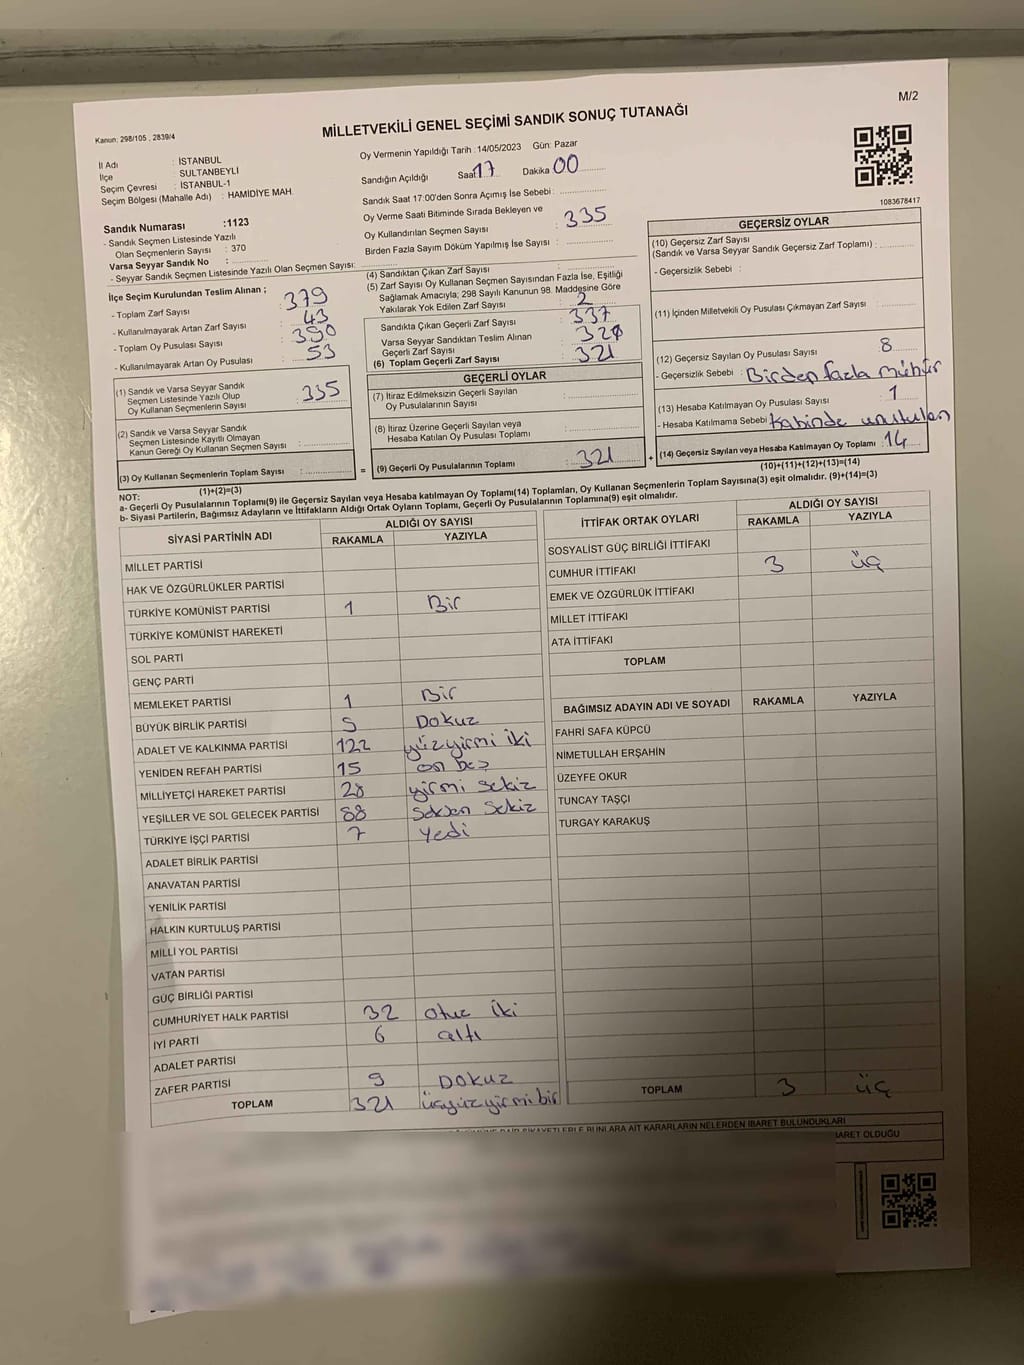 M/2
Kanun: 298/105 , 2839/4
MİLLETVEKİLİ GENEL SEÇİMİ SANDIK SONUÇ TUTANAĞI
İl Adı : İSTANBUL
İlçe : SULTANBEYLİ
Seçim Çevresi : İSTANBUL-1
Seçim Bölgesi (Mahalle Adı) : HAMİDİYE MAH.
Oy Vermenin Yapıldığı Tarih : 14/05/2023 Gün: Pazar
Sandığın Açıldığı Saat 17 Dakika 00
Sandık Saat 17:00'den Sonra Açımış İse Sebebi :
Oy Verme Saati Bitiminde Sırada Bekleyen ve
Oy Kullandırılan Seçmen Sayısı : 335
Birden Fazla Sayım Döküm Yapılmış İse Sayısı :
1083678417
Sandık Numarası :1123
- Sandık Seçmen Listesinde Yazılı
Olan Seçmenlerin Sayısı : 370
Varsa Seyyar Sandık No :
- Seyyar Sandık Seçmen Listesinde Yazılı Olan Seçmen Sayısı:
İlçe Seçim Kurulundan Teslim Alınan ;
- Toplam Zarf Sayısı : 379
- Kullanılmayarak Artan Zarf Sayısı : 43
- Toplam Oy Pusulası Sayısı : 390
- Kullanılmayarak Artan Oy Pusulası : 53
(1) Sandık ve Varsa Seyyar Sandık
Seçmen Listesinde Yazılı Olup
Oy Kullanan Seçmenlerin Sayısı : 335
(2) Sandık ve Varsa Seyyar Sandık
Seçmen Listesinde Kayıtlı Olmayan
Kanun Gereği Oy Kullanan Seçmen Sayısı :
(3) Oy Kullanan Seçmenlerin Toplam Sayısı :
(1)+(2)=(3)
(4) Sandıktan Çıkan Zarf Sayısı :
(5) Zarf Sayısı Oy Kullanan Seçmen Sayısından Fazla İse, Eşitliği
Sağlamak Amacıyla; 298 Sayılı Kanunun 98. Maddesine Göre
Yakılarak Yok Edilen Zarf Sayısı : 2
Sandıkta Çıkan Geçerli Zarf Sayısı : 337
Varsa Seyyar Sandıktan Teslim Alınan
Geçerli Zarf Sayısı :
(6) Toplam Geçerli Zarf Sayısı : 321
GEÇERLİ OYLAR
(7) İtiraz Edilmeksizin Geçerli Sayılan
Oy Pusulalarının Sayısı :
(8) İtiraz Üzerine Geçerli Sayılan veya
Hesaba Katılan Oy Pusulası Toplamı :
= (9) Geçerli Oy Pusulalarının Toplamı : 321 +
GEÇERSİZ OYLAR
(10) Geçersiz Zarf Sayısı
(Sandık ve Varsa Seyyar Sandık Geçersiz Zarf Toplamı) :
- Geçersizlik Sebebi :
(11) İçinden Milletvekili Oy Pusulası Çıkmayan Zarf Sayısı :
(12) Geçersiz Sayılan Oy Pusulası Sayısı : 8
- Geçersizlik Sebebi : Birden fazla mühür
(13) Hesaba Katılmayan Oy Pusulası Sayısı : 1
- Hesaba Katılmama Sebebi : Kabinde unutulan
(14) Geçersiz Sayılan veya Hesaba Katılmayan Oy Toplamı : 14
(10)+(11)+(12)+(13)=(14)
NOT:
a- Geçerli Oy Pusulalarının Toplamı(9) ile Geçersiz Sayılan veya Hesaba katılmayan Oy Toplamı(14) Toplamları, Oy Kullanan Seçmenlerin Toplam Sayısına(3) eşit olmalıdır. (9)+(14)=(3)
b- Siyasi Partilerin, Bağımsız Adayların ve İttifakların Aldığı Ortak Oyların Toplamı, Geçerli Oy Pusulalarının Toplamına(9) eşit olmalıdır.
SİYASİ PARTİNİN ADI ALDIĞI OY SAYISI
RAKAMLA YAZIYLA
MİLLET PARTİSİ
HAK VE ÖZGÜRLÜKLER PARTİSİ
TÜRKİYE KOMÜNİST PARTİSİ 1 Bir
TÜRKİYE KOMÜNİST HAREKETİ
SOL PARTİ
GENÇ PARTİ
MEMLEKET PARTİSİ 1 Bir
BÜYÜK BİRLİK PARTİSİ 9 Dokuz
ADALET VE KALKINMA PARTİSİ 122 yüzyirmi iki
YENİDEN REFAH PARTİSİ 15 on beş
MİLLİYETÇİ HAREKET PARTİSİ 28 yirmi sekiz
YEŞİLLER VE SOL GELECEK PARTİSİ 88 Seksen Sekiz
TÜRKİYE İŞÇİ PARTİSİ 7 Yedi
ADALET BİRLİK PARTİSİ
ANAVATAN PARTİSİ
YENİLİK PARTİSİ
HALKIN KURTULUŞ PARTİSİ
MİLLİ YOL PARTİSİ
VATAN PARTİSİ
GÜÇ BİRLİĞİ PARTİSİ
CUMHURİYET HALK PARTİSİ 32 otuz iki
İYİ PARTİ 6 altı
ADALET PARTİSİ
ZAFER PARTİSİ 9 Dokuz
TOPLAM 321 üçyüzyirmibir
İTTİFAK ORTAK OYLARI ALDIĞI OY SAYISI
RAKAMLA YAZIYLA
SOSYALİST GÜÇ BİRLİĞİ İTTİFAKI
CUMHUR İTTİFAKI 3 üç
EMEK VE ÖZGÜRLÜK İTTİFAKI
MİLLET İTTİFAKI
ATA İTTİFAKI
TOPLAM
BAĞIMSIZ ADAYIN ADI VE SOYADI RAKAMLA YAZIYLA
FAHRİ SAFA KÜPCÜ
NİMETULLAH ERŞAHİN
ÜZEYFE OKUR
TUNCAY TAŞÇI
TURGAY KARAKUŞ
TOPLAM 3 üç
KARARLARIN NELERDEN İBARET BULUNDUKLARI
İBARET OLDUĞU